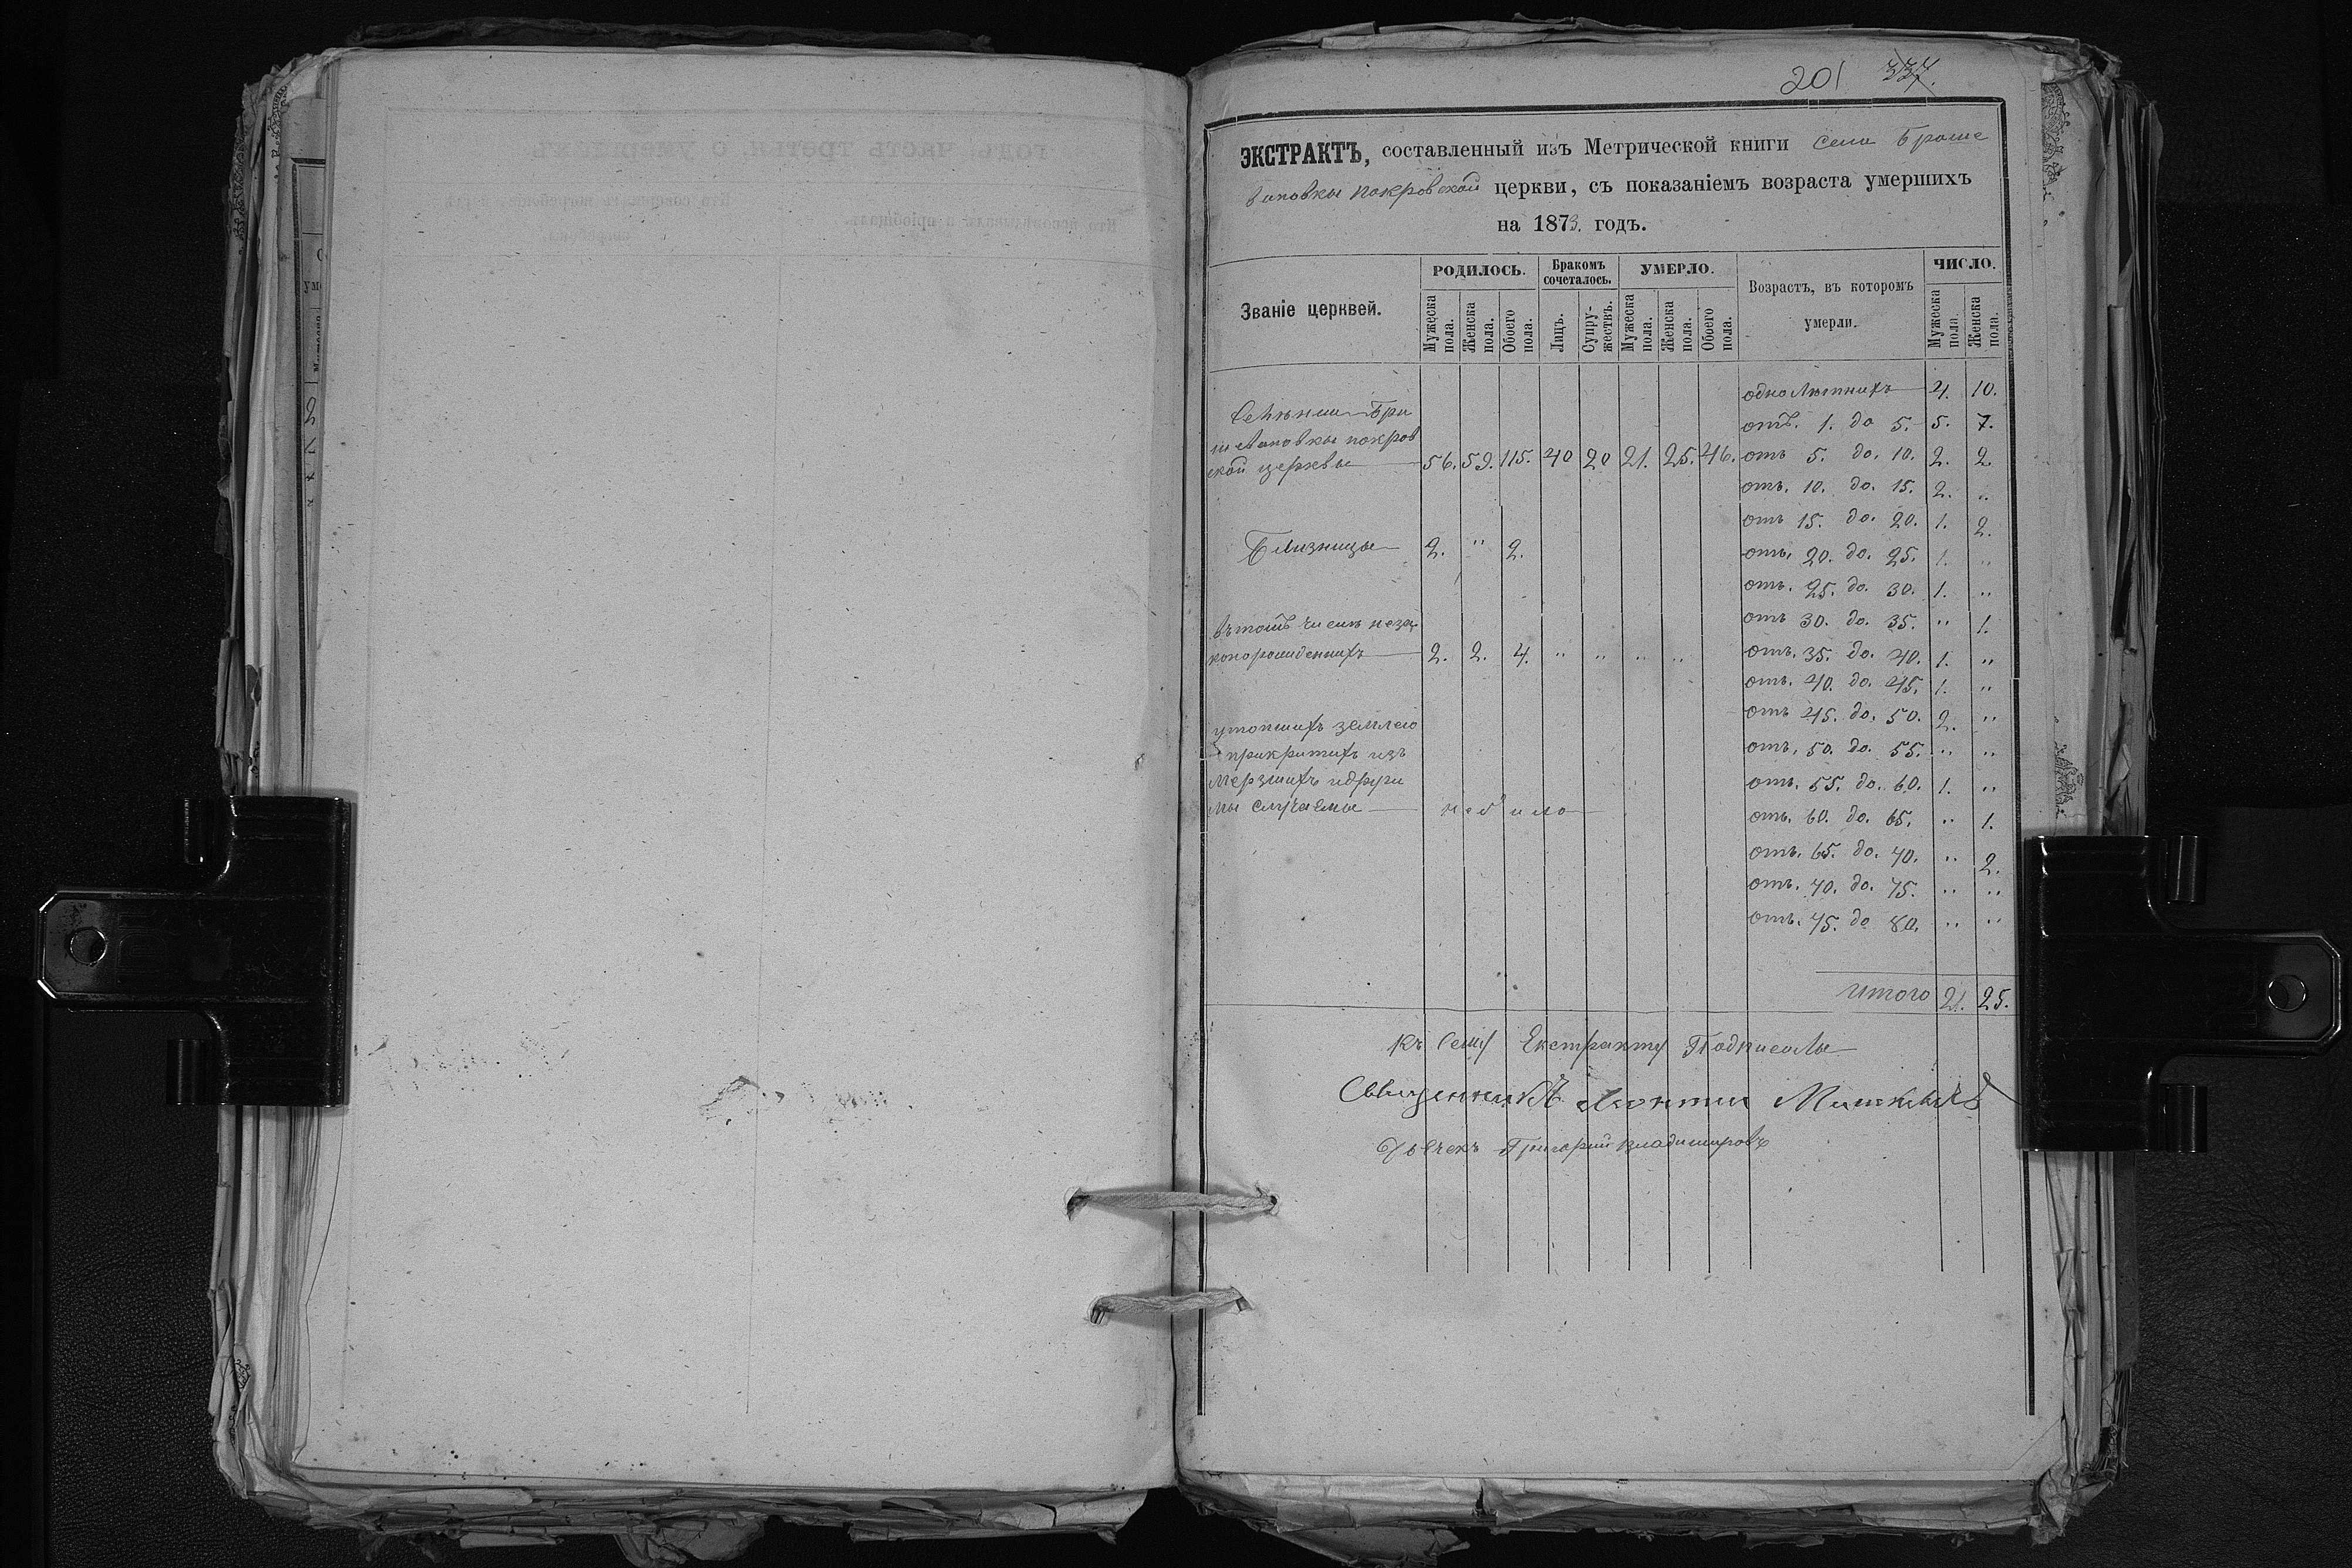 201 337.
ЭКСТРАКТЪ, составленный изъ Метрической книги селаБроше
вановкы покровской церкви, съ показаніемъ возраста умершихъ
на 1873. годъ.
Званіе церквей.
РОДИЛОСЬ.
Мужеска пола.
Женска пола.
Обоего пола.
Бракомъ сочеталось.
Лицъ.
Супружествъ.
УМЕРЛО.
Мужеска пола.
Женска пола.
Обоего пола.
Возрастъ, въ которомъ умерли.
ЧИСЛО.
Мужеска пола.
Женска пола.
покров
ской церквы 56. 59. 115. 40 20 21. 25. 46.
Близницы 2. " 2.
въ томъ числѣ неза
конорожденныхъ 2. 2. 4. " " " "
утопшихъ землею
прикритихъ изъ
мерзшихъ идруги
мы случаемы небило
однолѣтнихъ 4. 10.
отъ. 1. до 5. 5. 7.
отъ 5. до. 10. 2. 2.
отъ. 10. до. 15. 2. "
отъ 15. до. 20. 1. 2.
отъ. 20. до. 25. 1. "
отъ. 25. до. 30. 1. "
отъ 30. до. 35. " 1.
отъ. 35. до. 40. 1. "
отъ. 40. до. 45. 1. "
отъ 45. до. 50. 2. "
отъ. 50. до. 55. " "
отъ. 55. до. 60. 1. "
отъ. 60. до. 65. " 1.
отъ. 65. до. 70. " 2.
отъ. 70. до. 75. " "
отъ. 75. до 80. " "
итого 21. 25.
Къ Сему Екстракту Подписалы
Священникъ Леонтии
Дьячекъ Григорий Владимировъ